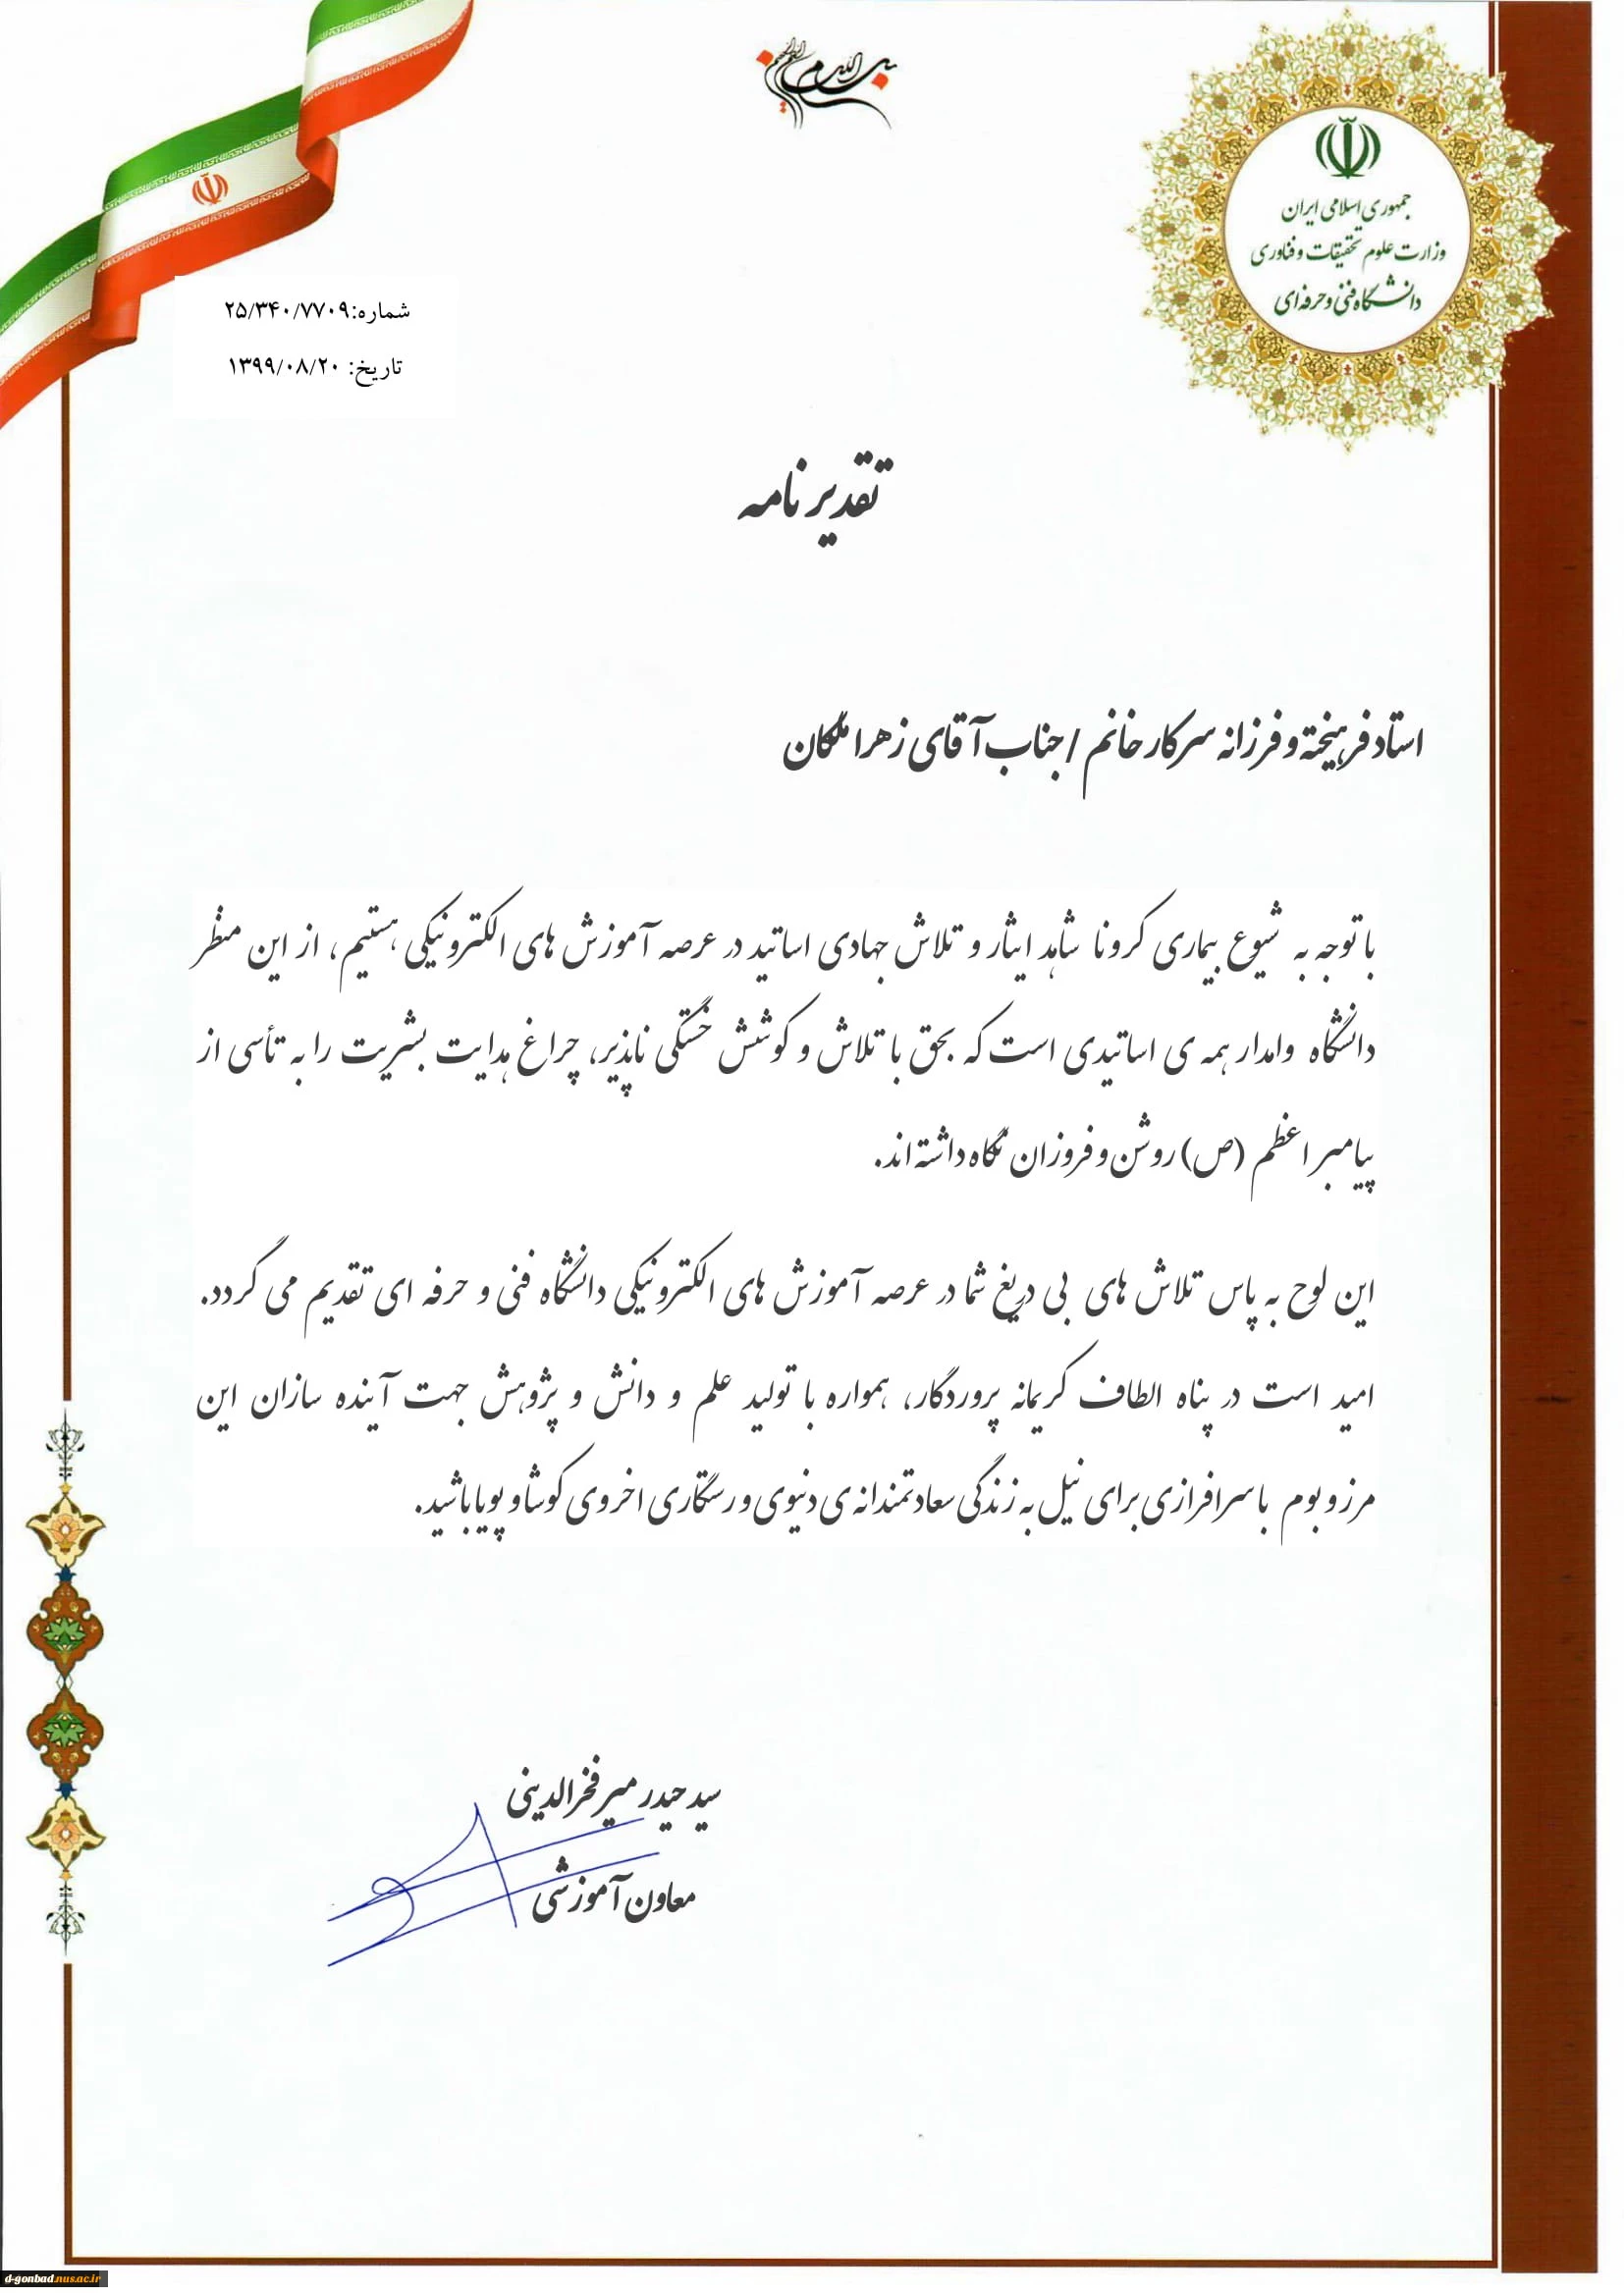 بسم الله الرحمن الرحیم
جمهوری اسلامی ایران
وزارت علوم تحقیقات و فناوری
دانشگاه فنی و حرفه‌ای
شماره:۲۵/۳۴۰/۷۷۰۹
تاریخ: ۱۳۹۹/۰۸/۲۰
تقدیر نامه
استاد فرهیخته و فرزانه سرکار خانم / جناب آقای زهرا ملکان
با توجه به شیوع بیماری کرونا شاهد ایثار و تلاش جهادی اساتید در عرصه آموزش های الکترونیکی هستیم، از این منظر
دانشگاه وامدار همه ی اساتیدی است که بحق با تلاش و کوشش خستگی ناپذیر، چراغ هدایت بشریت را به تأسی از
پیامبر اعظم (ص) روشن و فروزان نگاه داشته اند.
این لوح به پاس تلاش های بی دریغ شما در عرصه آموزش های الکترونیکی دانشگاه فنی و حرفه ای تقدیم می گردد.
امید است در پناه الطاف کریمانه پروردگار، همواره با تولید علم و دانش و پژوهش جهت آینده سازان این
مرز و بوم با سرافرازی برای نیل به زندگی سعادتمندانه ی دنیوی و رستگاری اخروی کوشا و پویا باشید.
سید حیدر میرفخرالدینی
معاون آموزشی
d-gonbad.nus.ac.ir